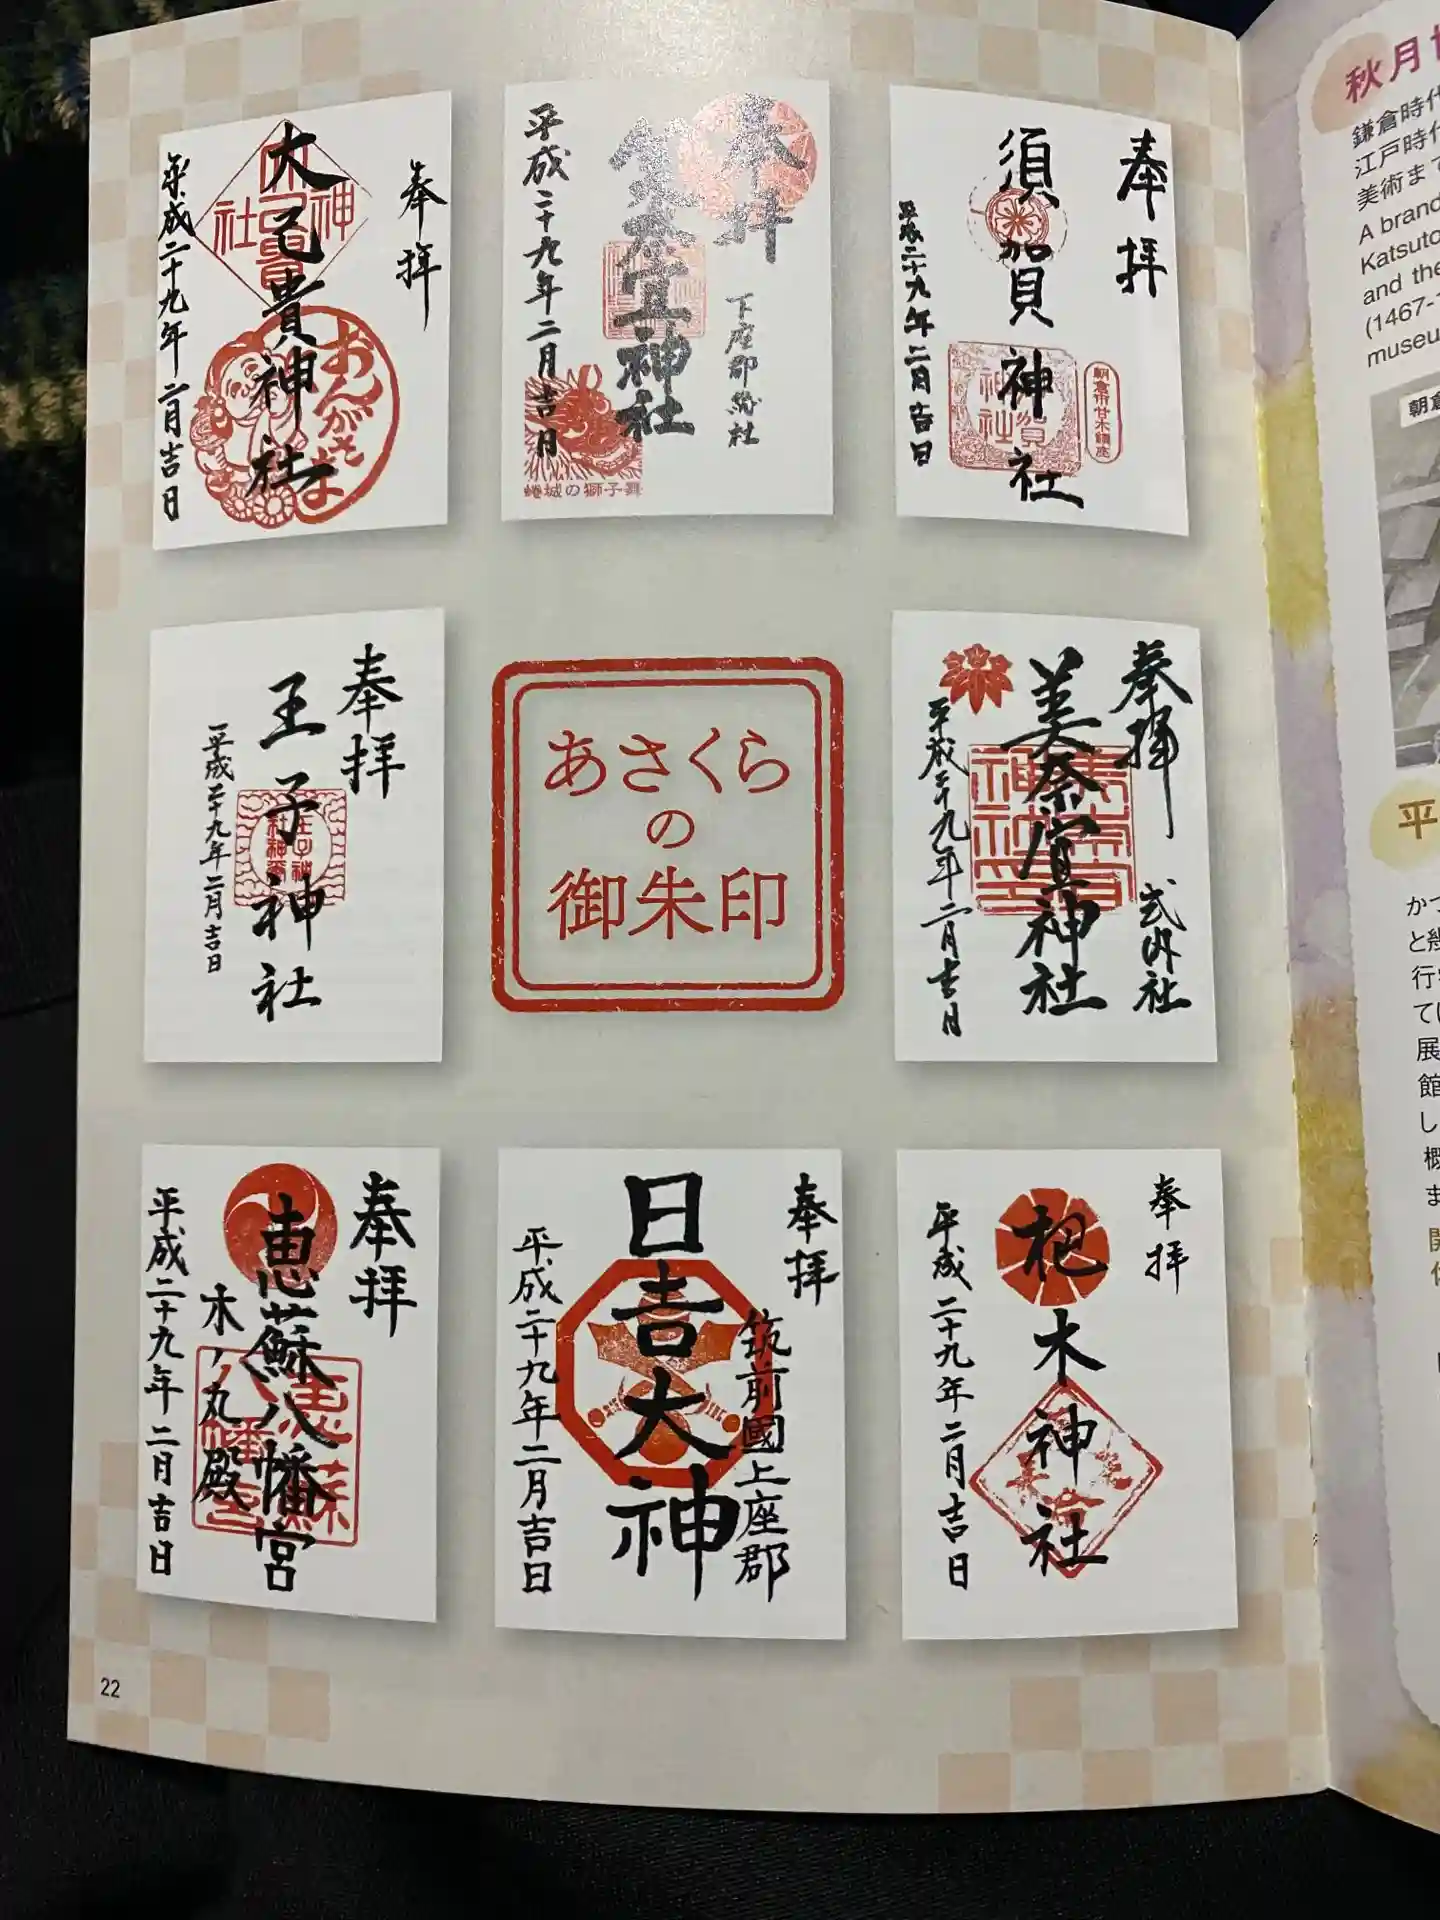 奉拝
大己貴神社
平成二十九年二月吉日
おんがさま
奉拝
下座郡総社
美奈宜神社
平成二十九年二月吉日
蜷城の獅子舞
奉拝
須賀神社
平成二十九年二月吉日
朝倉市甘木鎮座
奉拝
王子神社
平成二十九年二月吉日
あさくら
の
御朱印
奉拝
式内社
美奈宜神社
平成二十九年二月吉日
奉拝
恵蘇八幡宮
木ノ丸殿
平成二十九年二月吉日
奉拝
筑前國上座郡
日吉大神
平成二十九年二月吉日
奉拝
杷木神社
平成二十九年二月吉日
22
秋月
鎌倉時代
江戸時代
美術まで
A brand
Katsuto
and the
(1467-
museu
朝倉
平
かつ
と
行
て
展
館
し
概
ま
開